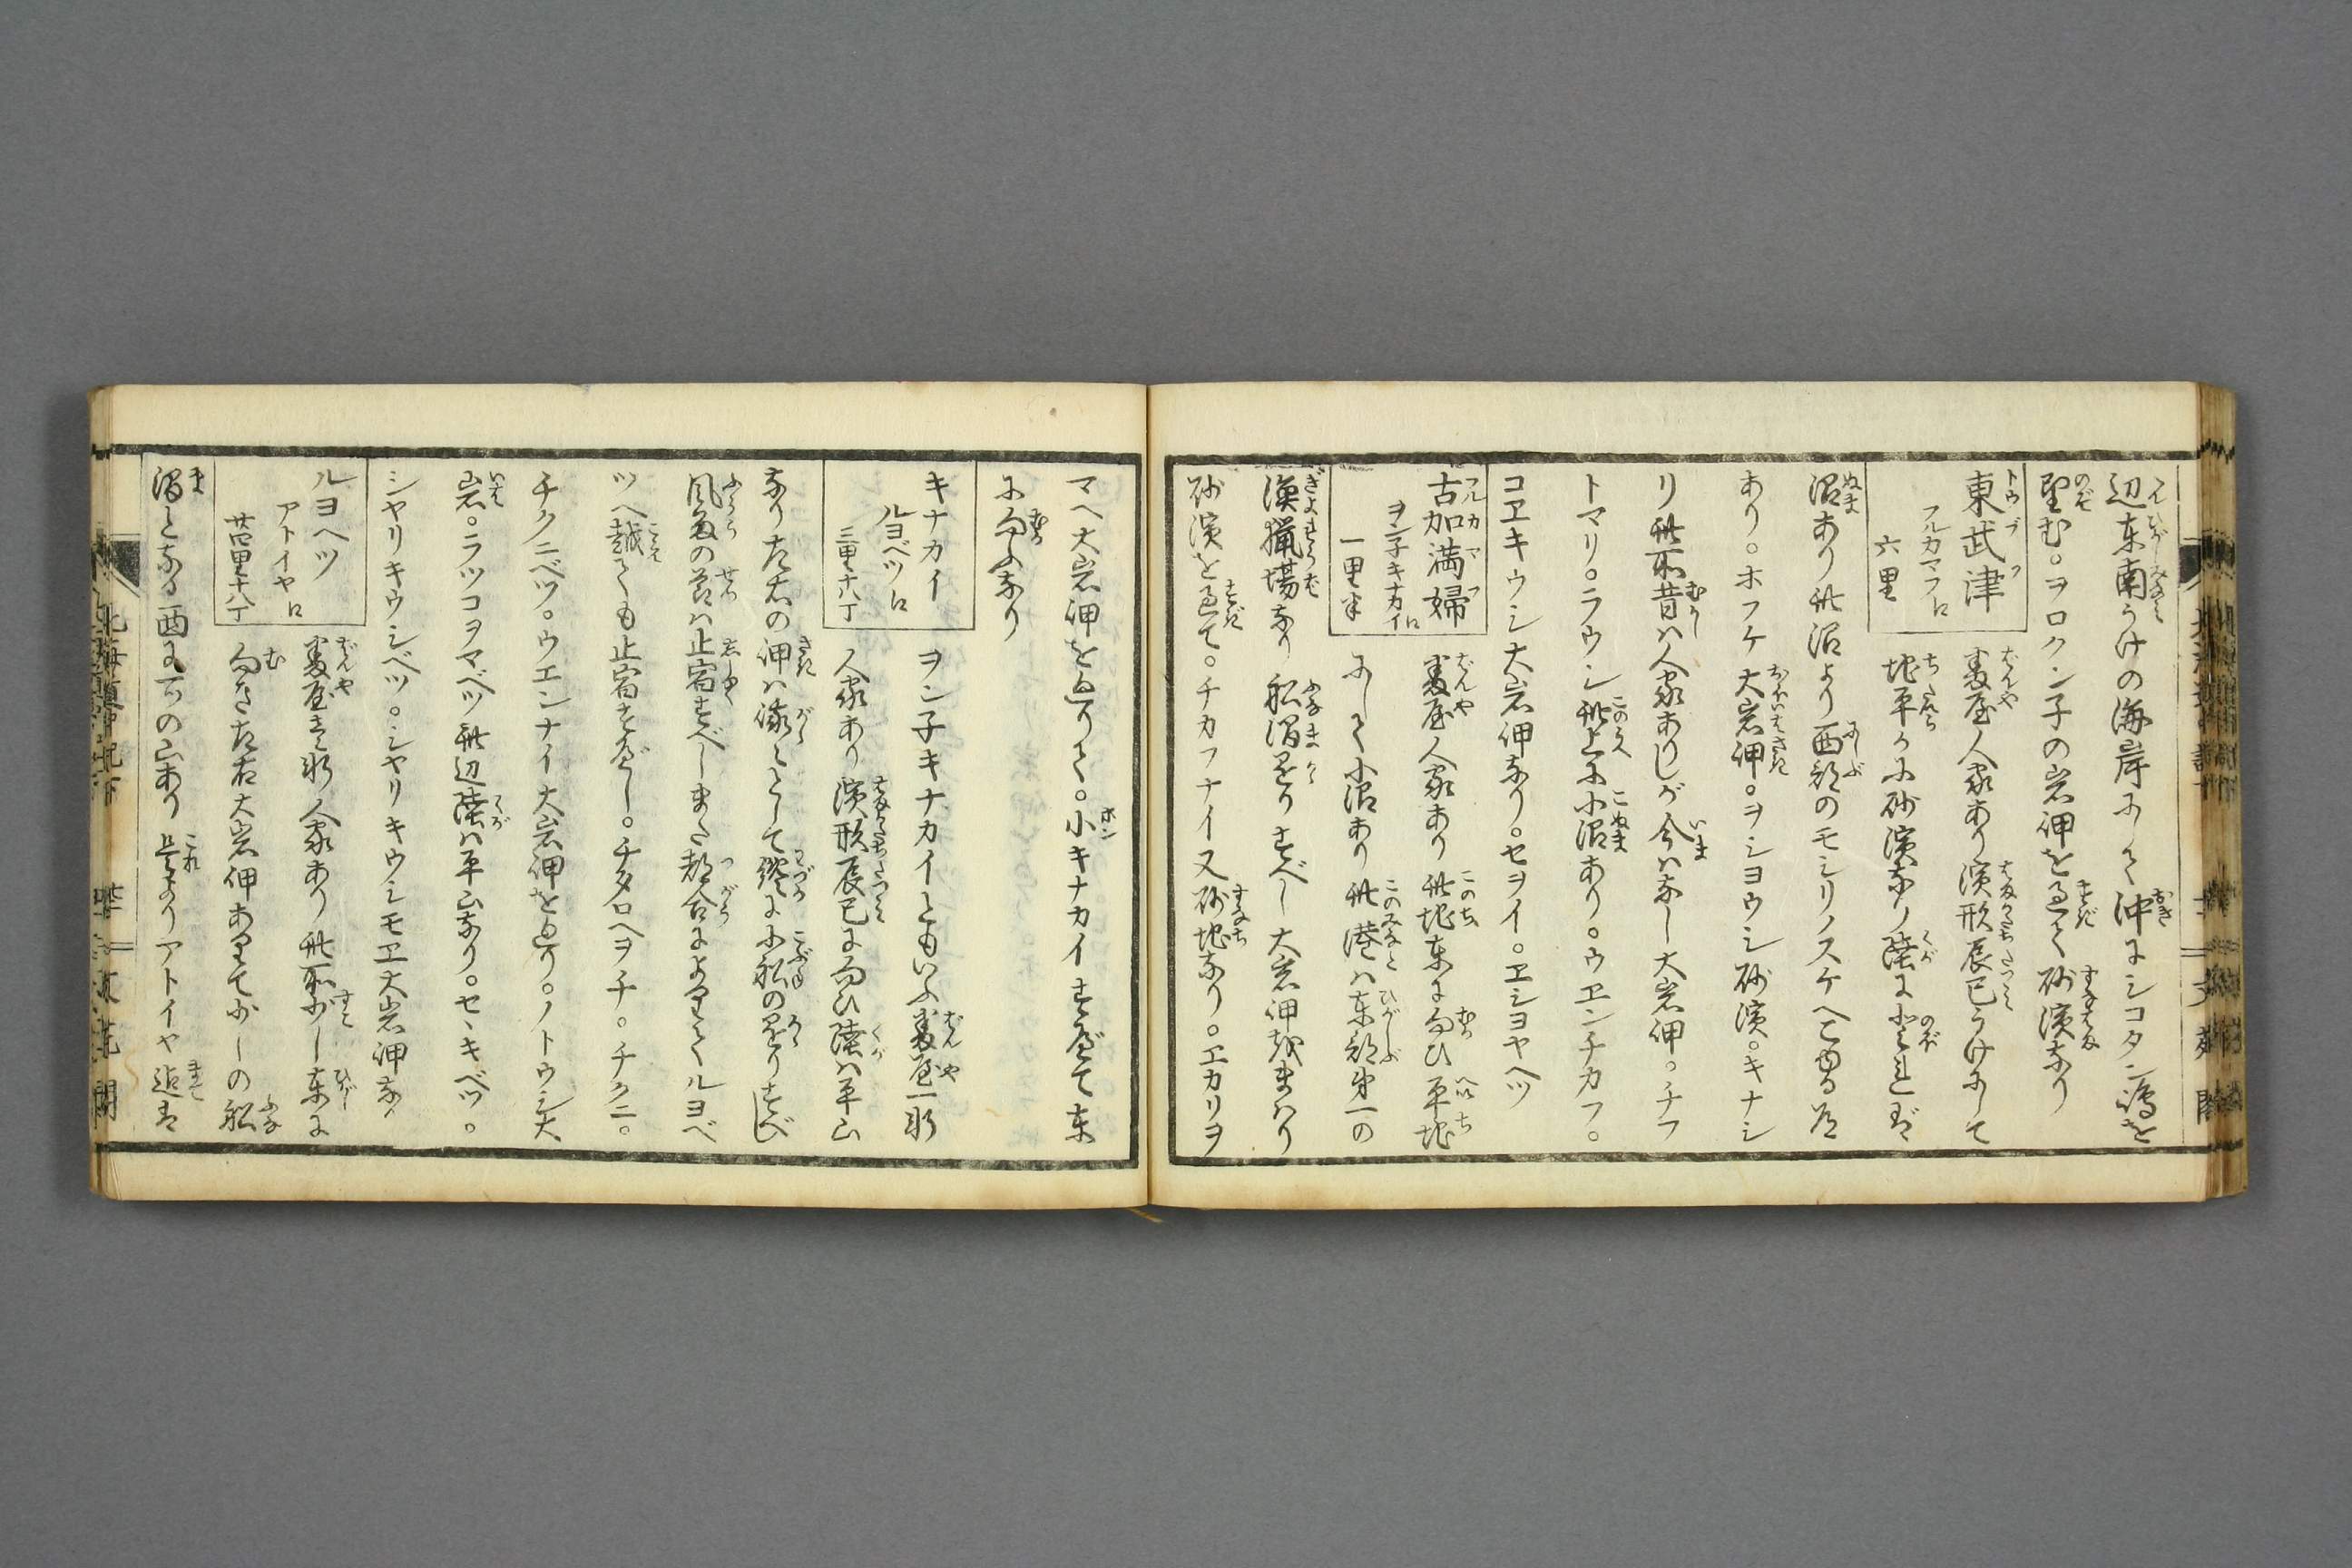 辺东南うけの海岸にして沖にシコタン嶋を
望む。ヲロクン子の岩岬を過て砂濱なり
東武津
フルカマフヘ
六里
番屋人家あり濱形辰巳うけにして
地平かに砂濱なり陸に登れば
沼あり此沼より西部のモシリノスケへこゆる道
あり。ホフケ大岩岬。ヲショウシ砂濱。キナシ
リ此所昔は人家ありしが今はなし大岩岬。チフ
トマリ。ニウシ此上に小沼あり。ウエンチカフ。
コヱキウシ大岩岬なり。セヲイ。ヱショヤヘツ
古加満婦
ヲン子キナカイヘ
一里半
番屋人家あり此地東に向ひ平地
にして小沼あり此港は東部第一の
漁猟場なり船澗掛りすべし大岩岬越まはり
砂濱を過て。チカフナイ又砂地なり。エカリヲ
マヘ大岩岬を廻りて。小キナカイすぎて東
に向ふなり
キナカイ
ルヨベツヘ
三里十八丁
ヲン子キナカイともいふ番屋一軒
人家あり濱形辰巳に向ひ陸は平山
なり左右の岬は峨々として纔に小船の掛りすべし
風多の節は止宿すべしまた都合によりてルヨベ
ツヘ越ても止宿すべし。チタロヘヲチ。チクニ。
チクニベツ。ウエンナイ大岩岬を廻り。ノトウシ大
岩。ラツコヲマベツ此辺陸は平山なり。セヽキベツ。
シヤリキウシベツ。シヤリキウシモヱ大岩岬なり
ルヨヘツ
アトイヤヘ
廿四里十八丁
番屋壱軒人家あり此所少し東に
向き左右大岩岬ありて少しの船
澗となる西に一の山あり是よりアトイヤ迄は